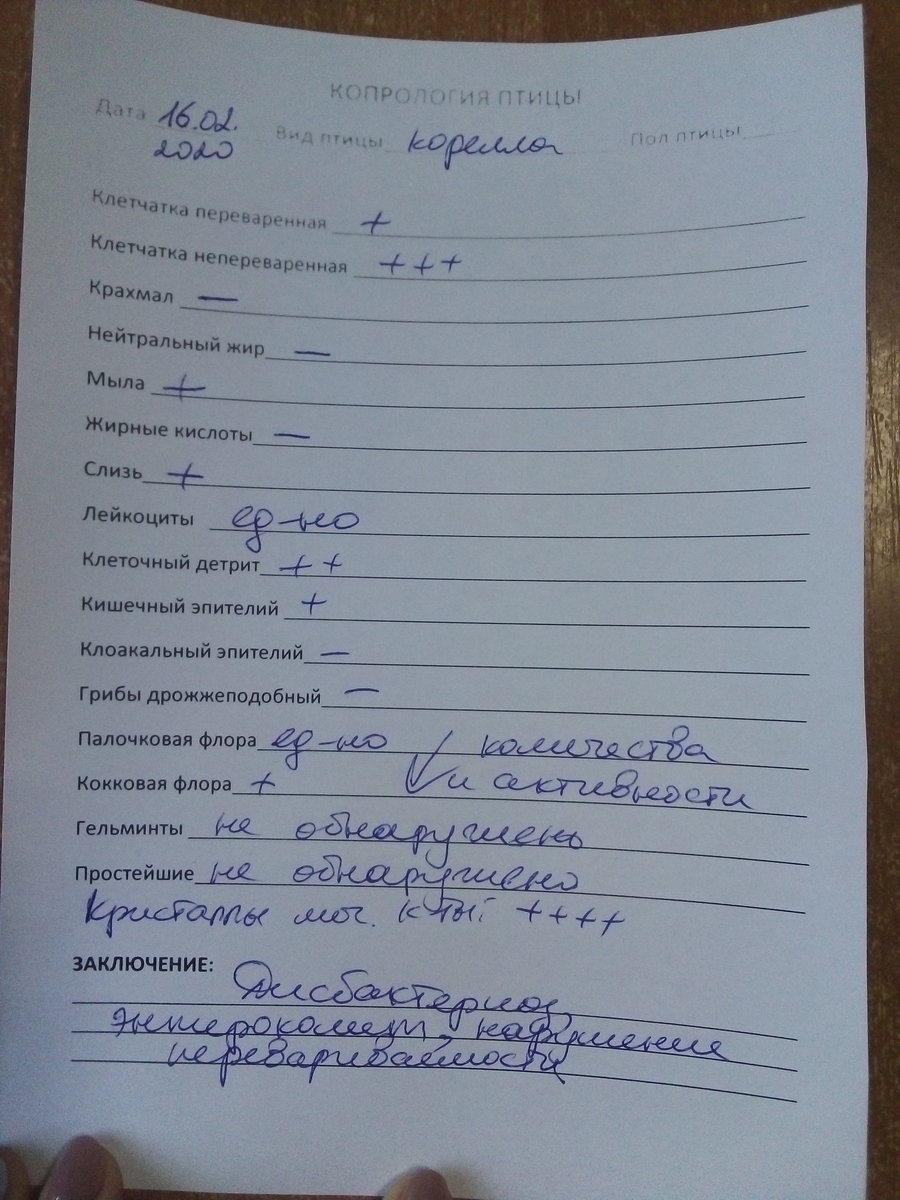 КОПРОЛОГИЯ ПТИЦЫ
Дата 16.02.2020 Вид птицы корелла Пол птицы
Клетчатка переваренная +
Клетчатка непереваренная +++
Крахмал —
Нейтральный жир —
Мыла +
Жирные кислоты —
Слизь +
Лейкоциты ед-но
Клеточный детрит ++
Кишечный эпителий +
Клоакальный эпителий —
Грибы дрожжеподобный —
Палочковая флора ед-но ↓ количества
Кокковая флора + и активности
Гельминты не обнаружены
Простейшие не обнаружено
Кристаллы моч. к-ты: ++++
ЗАКЛЮЧЕНИЕ: Дисбактериоз,
энтероколит, нарушение
перевариваемости